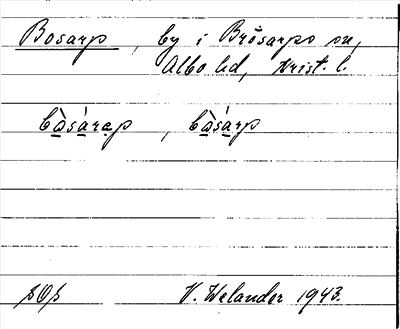 Bosarp, by i Brösarps sn,
Albo hd, Krist. l.
bòsárap, bòsárp
sOs V. Welander 1943.